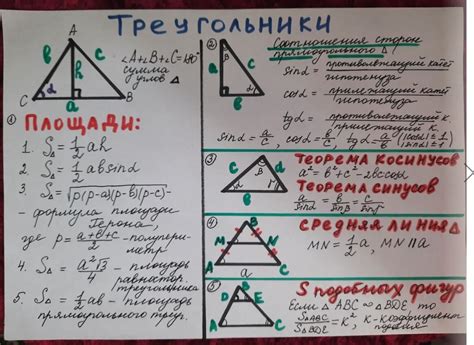 Треугольники
A
b
c
h
α
a
C
B
∠A+∠B+∠C=180°
сумма
углов Δ
① Площади:
1. S△ = 1/2 ah
2. S△ = 1/2 ab sinα
3. S△ = √p(p-a)(p-b)(p-c) -
- формула площади
Герона,
где p = (a+b+c)/2 - полупери-
метр
4. S△ = a²√3/4 - площадь
равностор.
треугольника
5. S△ = 1/2 ab - площадь
прямоугольного треуг.
②
B
a
c
b
α
Соотношения сторон
прямоугольного Δ
sinα = противолежащий катет/гипотенуза
cosα = прилежащий катет/гипотенуза
tgα = противолежащий к./прилежащий к.
sinα = a/c, cosα = b/c, tgα = a/b (|cosα|≤1 |sinα|≤1)
③
b
c
α
B
a
Теорема косинусов
a² = b² + c² - 2bc cosα
Теорема синусов
a/sinα = b/sinβ = c/sinγ
④
B
M
N
A
a
C
Средняя линия Δ
MN = 1/2 a, MN ∥ a
⑤
B
D
E
A
C
S подобных фигур
Если Δ ABC ∞ Δ BDE то
S△ABC/S△BDE = K², K - коэффициент
подобия